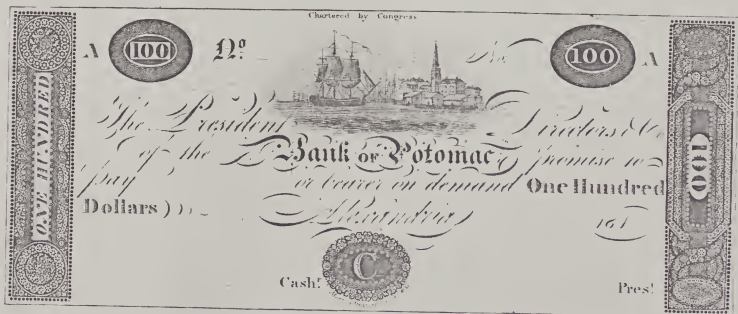 Chartered by Congress
A 100 Nº No. 100 A
ONE HUNDRED
The President Directors & Co
of the Bank OF Potomac promise to
pay or bearer on demand One Hundred
Dollars
Alexandria 181
100
C
Cash! Pres!